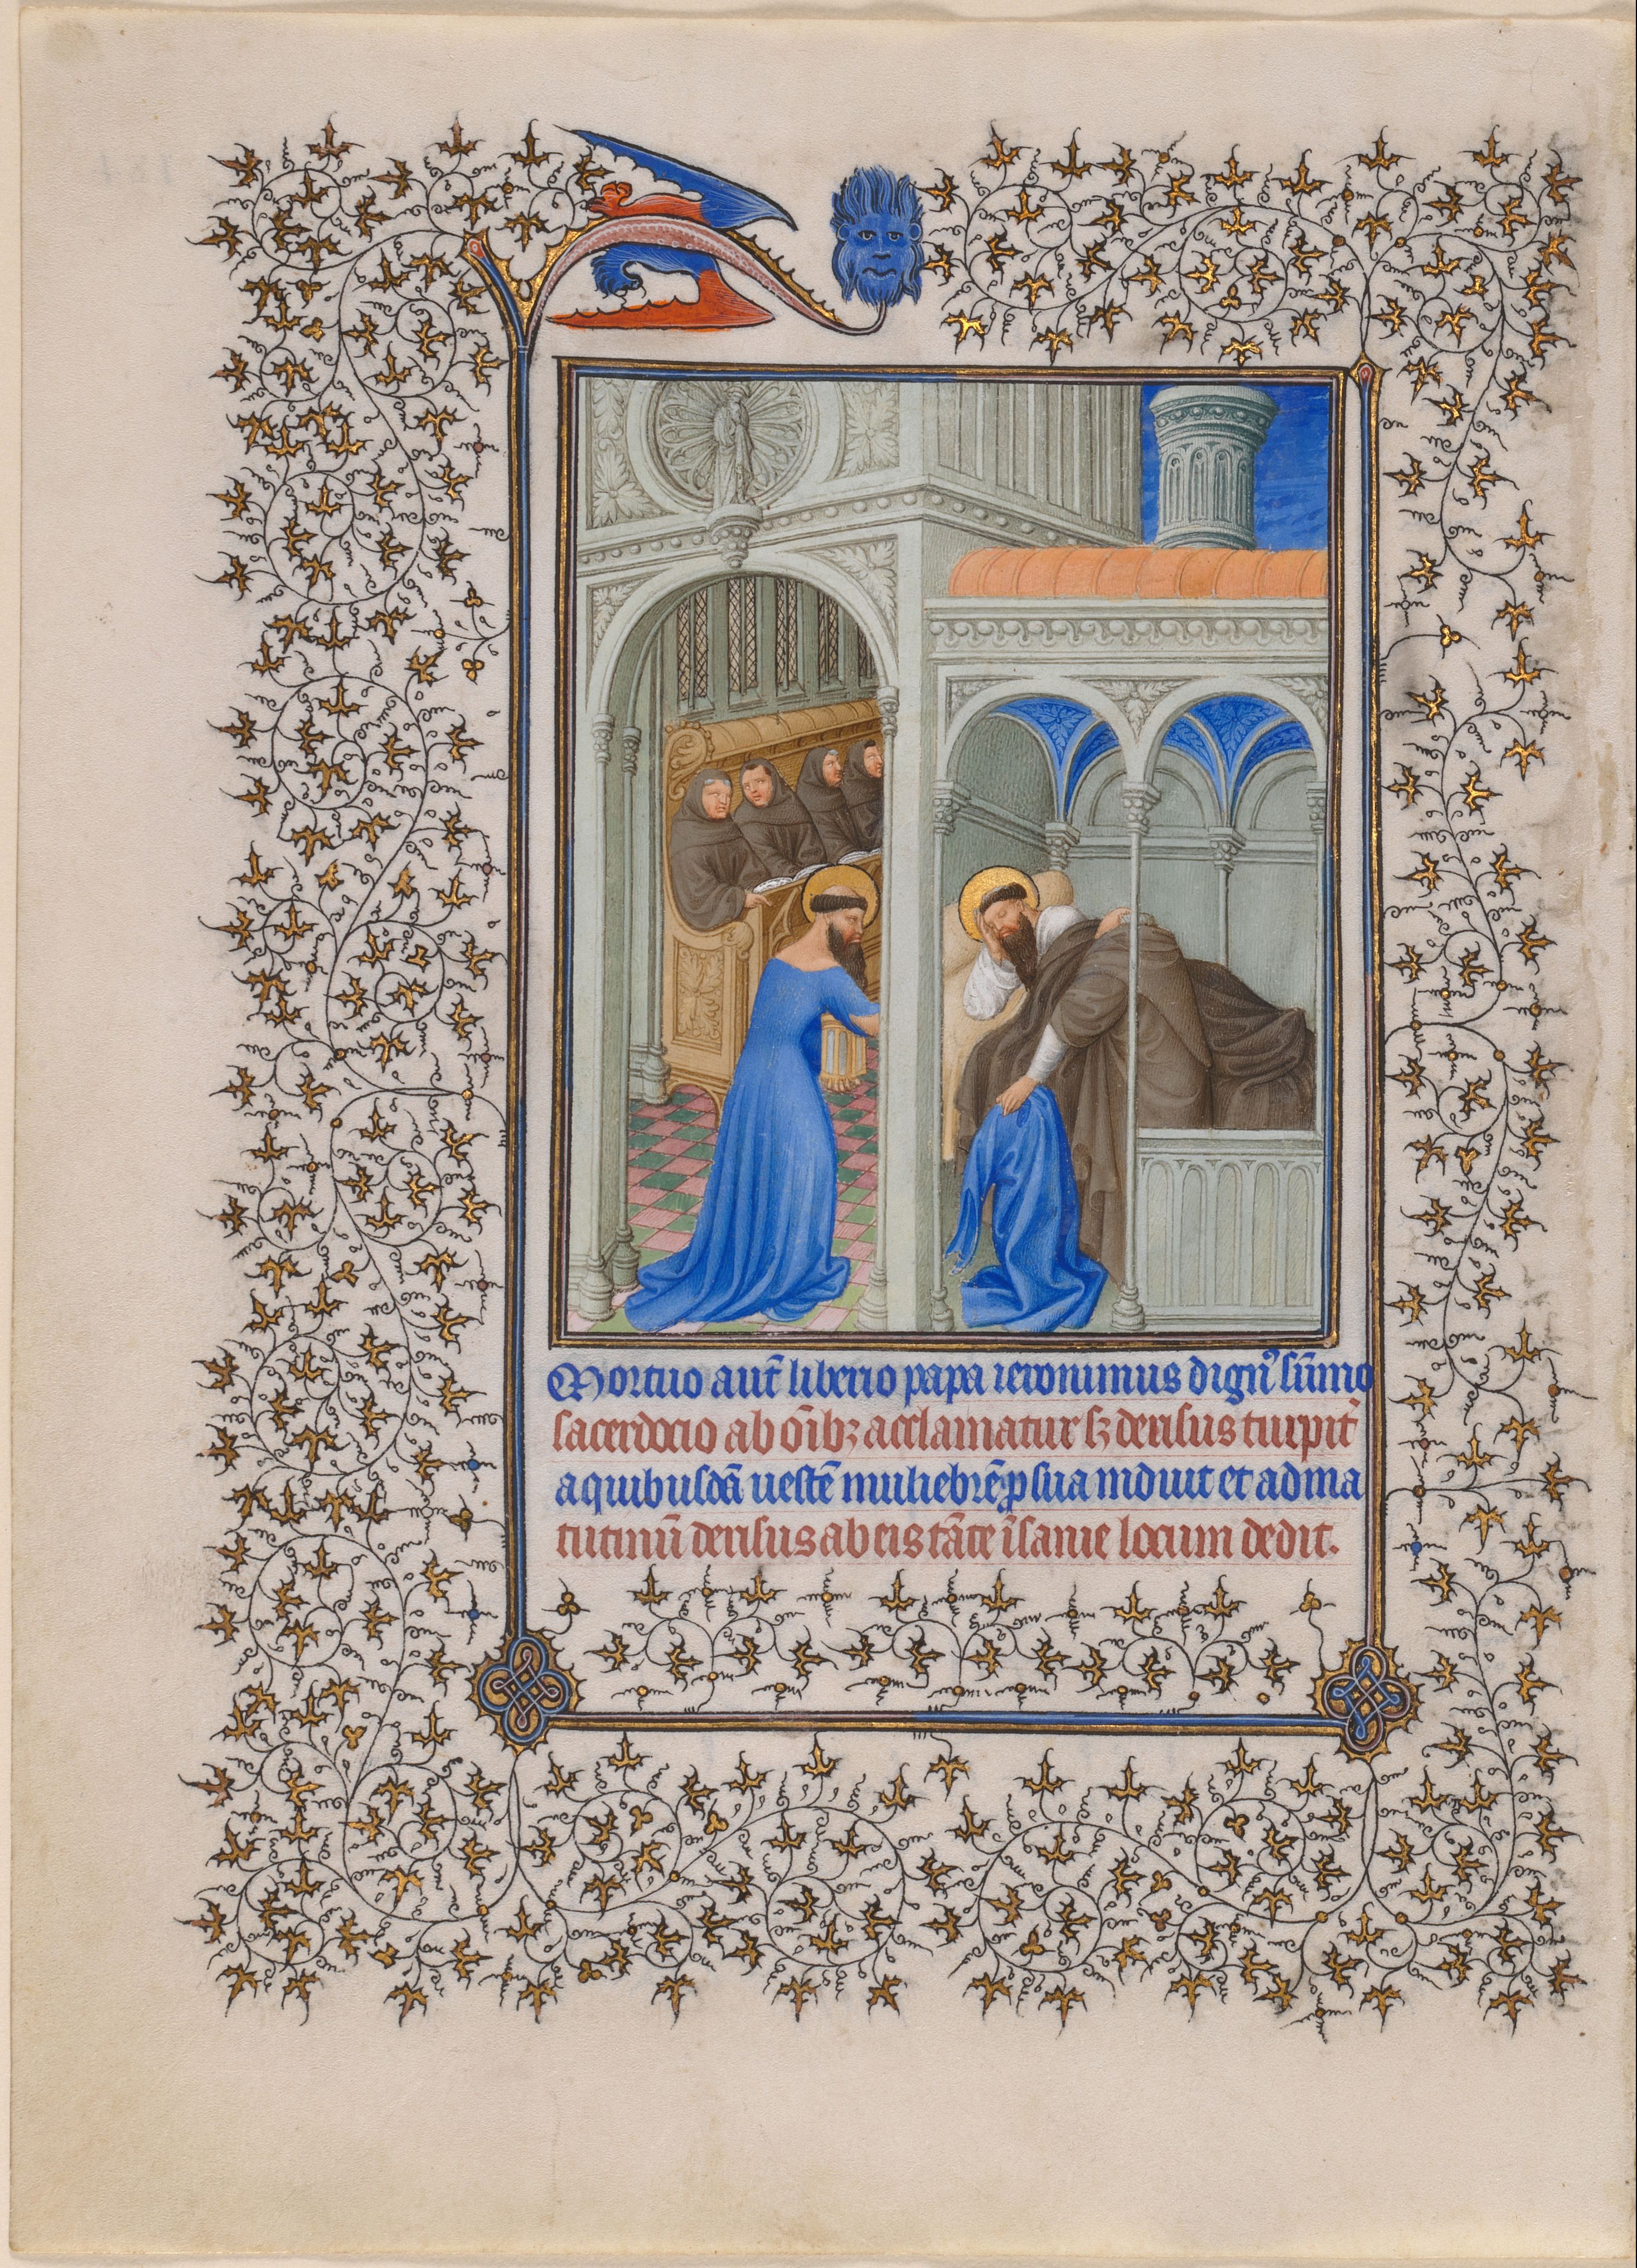 Mortuo aut̄ liberio papa ieronimus dignꝰ sūmo
sacerdocio ab oīb; acclamatur sꝫ derisus turpit̄
a quibusdā uestē muliebrē ꝓ sua induit et ad ma
tutinū derisus ab eis tāte īsanie locum dedit.